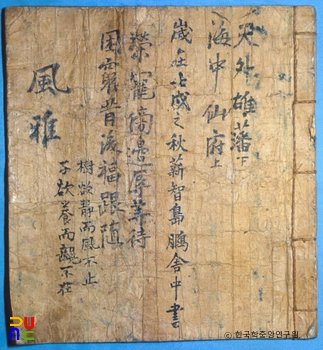 天外雄藩下
海中仙府上
歲在戊之秋薪智島鵬舍中書
榮寵傍邊辱等待
困窮背後福跟隨
樹欲靜而風不止
子欲養而親不在
風雅
© 한국학중앙연구원